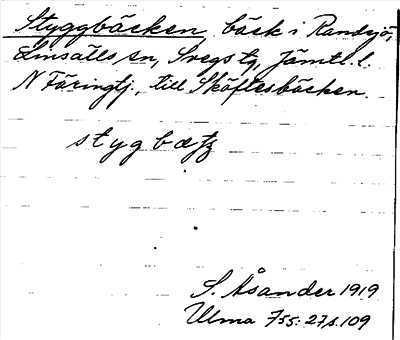 Styggbäcken, bäck i Randsjö,
Linsälls sn, Svegs tg, Jämtl. l.
N Färingtj., till Sköftesbäcken.
stygbæ
S. Åsander 1919
Ulma 755: 27, s. 109